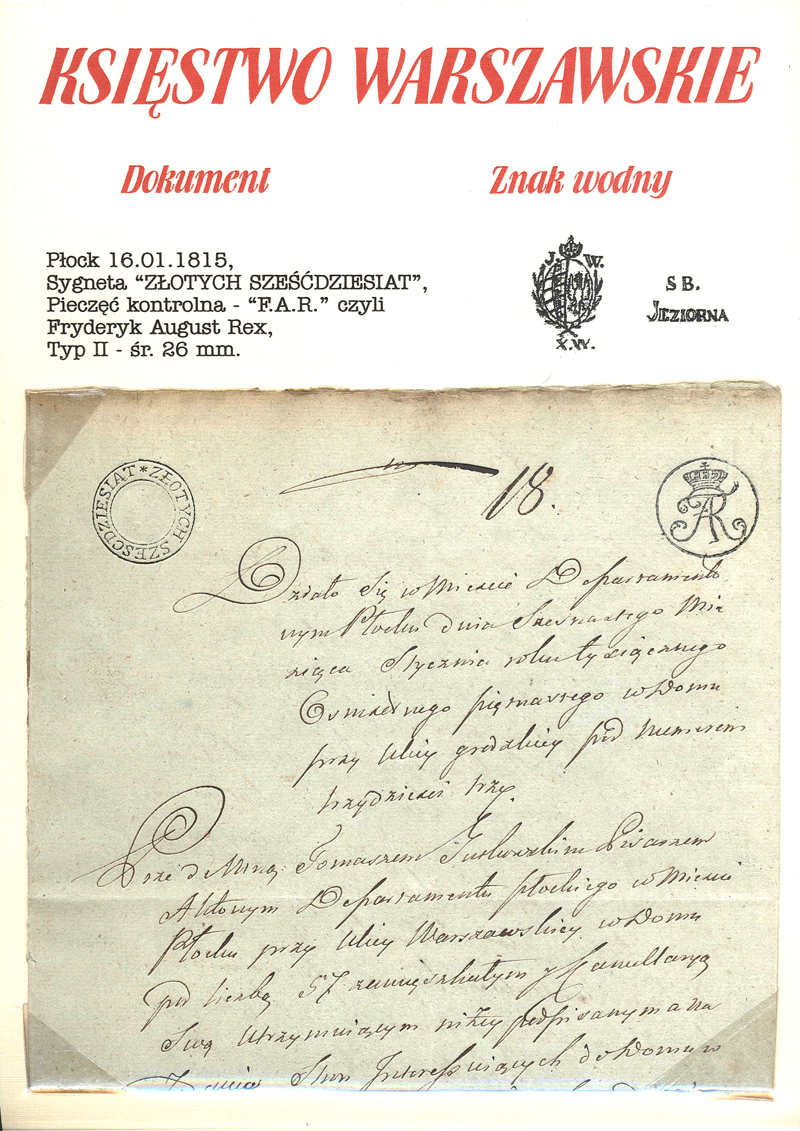 KSIĘSTWO WARSZAWSKIE
Dokument
Znak wodny
Płock 16.01.1815,
Sygneta “ZŁOTYCH SZEŚĆDZIESIAT”,
Pieczęć kontrolna - “F.A.R.” czyli
Fryderyk August Rex,
Typ II - śr. 26 mm.
J. W.
X.W.
S B.
JEZIORNA
* ZŁOTYCH SZESCDZIESIAT
18.
FAR
Działo się w Miescie Departamento
wym Płocku dnia Szesnastego Mie
siąca Stycznia roku tysiącznego
Osmsetnego piętnastego w Domu
przy Ulicy grodzkiey pod Numerem
trzydzieści trzy.
Przedemną Tomaszem Pisarzem
Aktowym Departamentu płockiego w Mieście
Płocku przy Ulicy Warszawskiey w Domu
pod liczbą 57 zamięszkałym y Kancellaryą
Swą utrzymuiącym niżey podpisanym a na
Ządanie Stron Interessuiących do Domu w